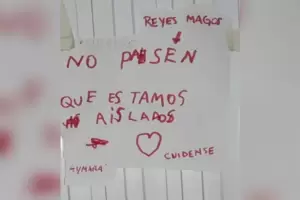 REYES MAGOS
NO PASEN
QUE ESTAMOS
AISLADOS
CUIDENSE
AYNARA